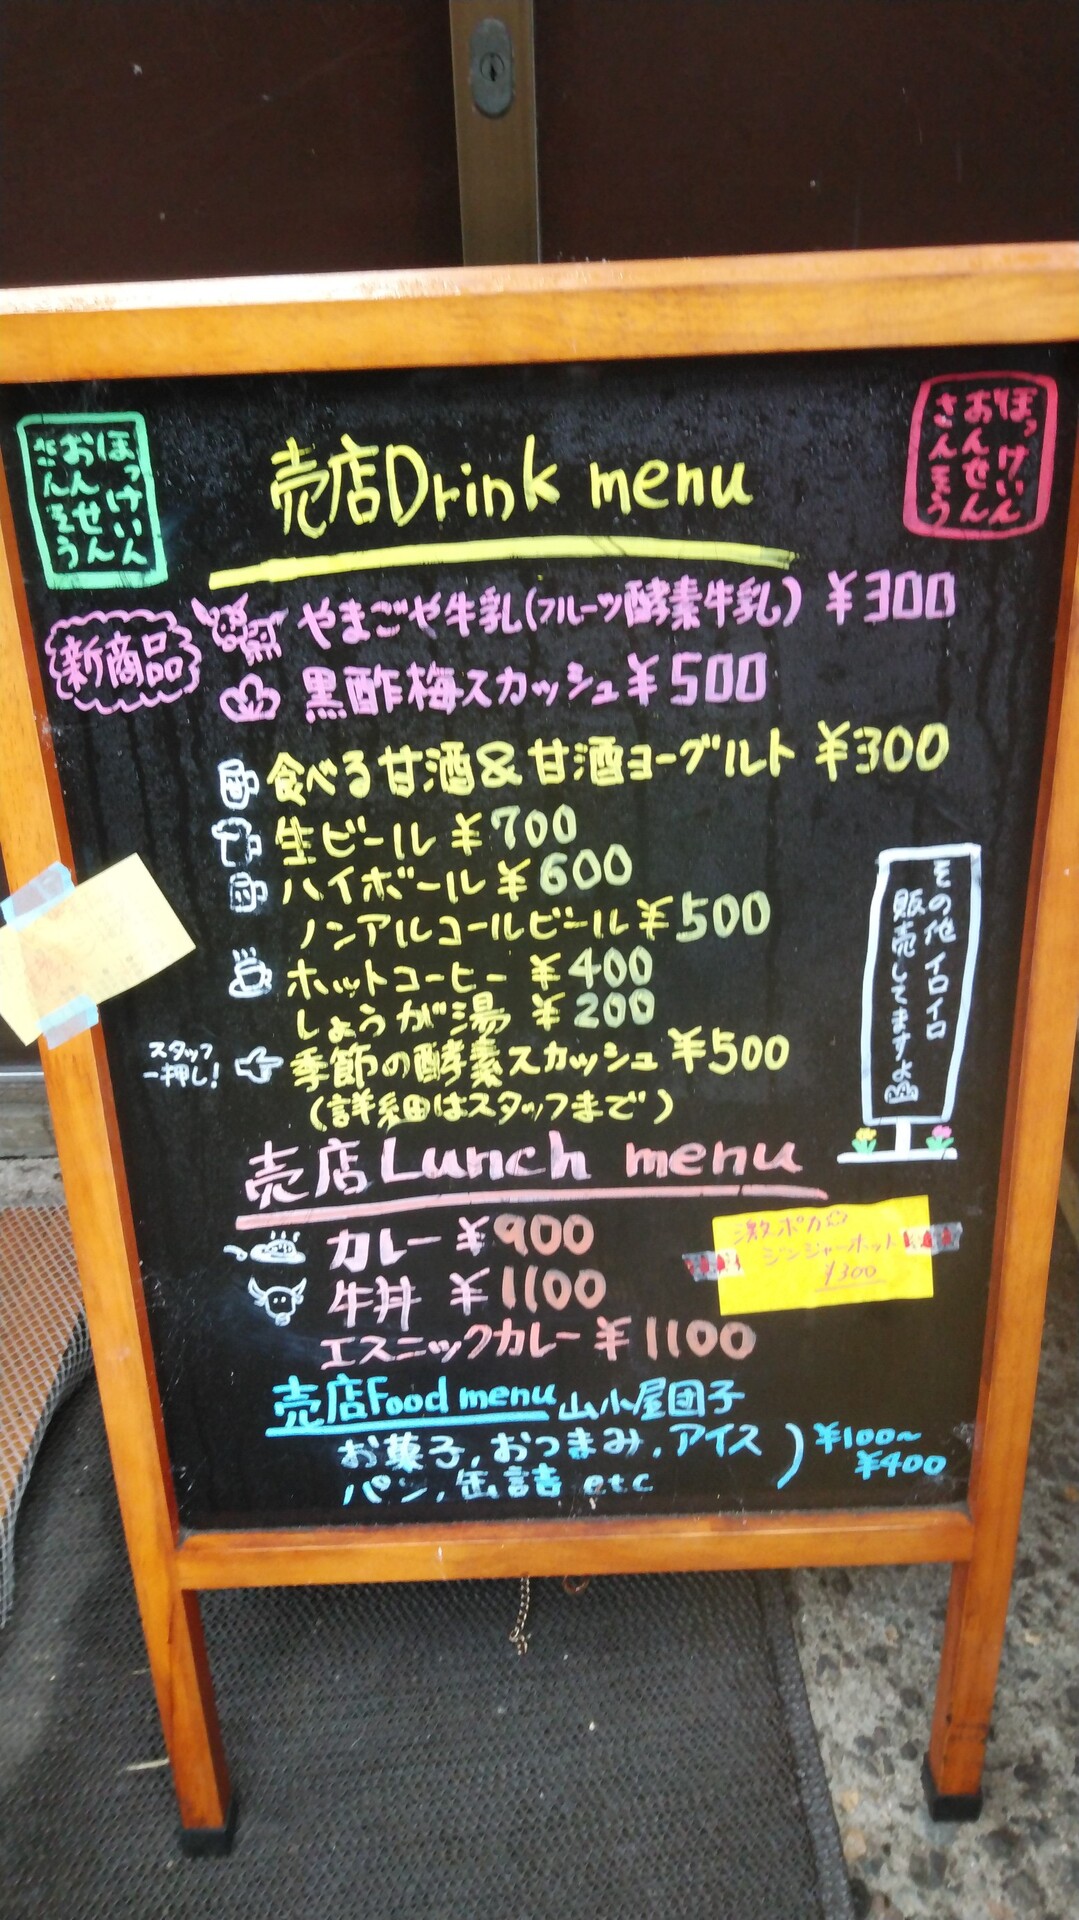 ほっけいん
おんせん
さんそう
ほっけいん
おんせん
さんそう
売店Drink menu
新商品
やまごや牛乳(フルーツ酵素牛乳) ¥300
黒酢梅スカッシュ¥500
食べる甘酒&甘酒ヨーグルト ¥300
生ビール ¥700
ハイボール ¥600
ノンアルコールビール ¥500
ホットコーヒー ¥400
しょうが湯 ¥200
スタッフ
一押し!
季節の酵素スカッシュ ¥500
(詳細はスタッフまで)
その他イロイロ
販売してますよ
売店Lunch menu
カレー ¥900
牛丼 ¥1100
エスニックカレー ¥1100
激ポカ☆
ジンジャーホット
¥300
売店Food menu 山小屋団子
お菓子,おつまみ,アイス
パン,缶詰 etc
) ¥100~
¥400